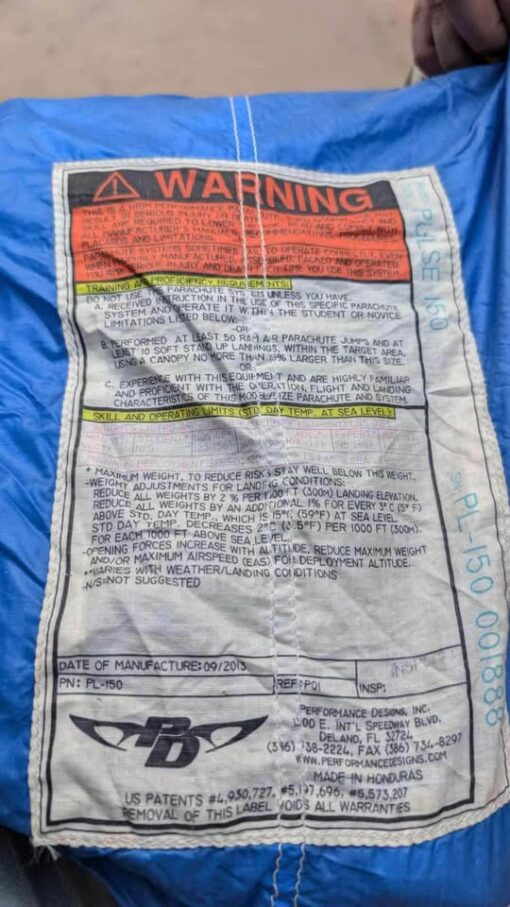 WARNING
THIS IS A HIGH PERFORMANCE
SERIOUS INJURY OR
REQUIRED TO LOWER
MANUFACTURER'S
PLACARDS AND LIMITATIONS.
PARACHUTE SYSTEMS SOMETIMES TO OPERATE PROPERLY, EVEN
WHEN PROPERLY MANUFACTURED, ASSEMBLED, PACKED AND OPERATED.
YOU RISK SERIOUS INJURY AND DEATH EACH TIME YOU USE THIS SYSTEM.
TRAINING AND PROFICIENCY REQUIREMENTS:
DO NOT USE THIS PARACHUTE SYSTEM UNLESS YOU HAVE:
A. RECEIVED INSTRUCTION IN THE USE OF THIS SPECIFIC PARACHUTE
SYSTEM AND OPERATE IT WITHIN THE STUDENT OR NOVICE
LIMITATIONS LISTED BELOW:
-OR-
B. PERFORMED AT LEAST 50 RAM AIR PARACHUTE JUMPS AND AT
LEAST 10 SOFT STAND UP LANDINGS, WITHIN THE TARGET AREA,
USING A CANOPY NO MORE THAN LARGER THAN THIS SIZE.
-OR-
C. EXPERIENCE WITH THIS EQUIPMENT AND ARE HIGHLY FAMILIAR
AND PROFICIENT WITH THE OPERATION, FLIGHT AND LANDING
CHARACTERISTICS OF THIS MODEL/SIZE PARACHUTE AND SYSTEM.
SKILL AND OPERATING LIMITS (STD DAY TEMP. AT SEA LEVEL):
* MAXIMUM WEIGHT, TO REDUCE RISKS STAY WELL BELOW THIS WEIGHT.
-WEIGHT ADJUSTMENTS FOR LANDING CONDITIONS:
REDUCE ALL WEIGHTS BY 2 % PER 1,000 FT (300M) LANDING ELEVATION.
REDUCE ALL WEIGHTS BY AN ADDITIONAL 1% FOR EVERY 3°C (5°F)
ABOVE STD. DAY TEMP., WHICH IS 15°C (59°F) AT SEA LEVEL.
STD DAY TEMP. DECREASES 2°C (3.5°F) PER 1000 FT (300M).
FOR EACH 1000 FT ABOVE SEA LEVEL
-OPENING FORCES INCREASE WITH ALTITUDE. REDUCE MAXIMUM WEIGHT
AND/OR MAXIMUM AIRSPEED (EAS) FOR DEPLOYMENT ALTITUDE.
**VARIES WITH WEATHER/LANDING CONDITIONS
-N/S=NOT SUGGESTED
DATE OF MANUFACTURE: 09/2013
PN: PL-150
REF: P01
INSP:
PD
PERFORMANCE DESIGNS, INC.
E. INT'L SPEEDWAY BLVD.
DELAND, FL 32724
FAX (386) 734-8297
WWW.PERFORMANCEDESIGNS.COM
MADE IN HONDURAS
US PATENTS #4,930,727, #5,197,696, #5,573,207
REMOVAL OF THIS LABEL VOIDS ALL WARRANTIES
PULSE 150
PL-150 001888